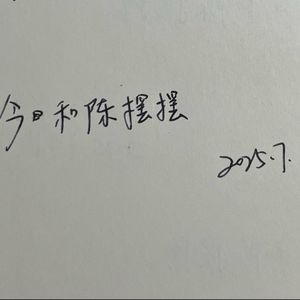 今日和陈摆摆
2025.7.